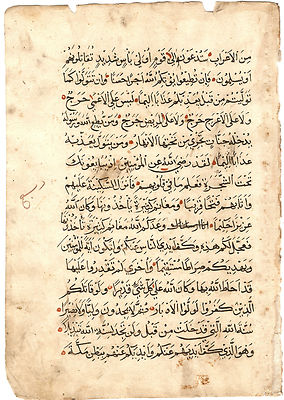 من الأعراب ستدعون إلى قوم أولي بأس شديد تقاتلونهم
أو يسلمون فإن تطيعوا يؤتكم الله أجرا حسنا وإن تتولوا كما
توليتم من قبل يعذبكم عذابا أليما ليس على الأعمى حرج
ولا على الأعرج حرج ولا على المريض حرج ومن يطع الله ورسوله
يدخله جنات تجري من تحتها الأنهار ومن يتول يعذبه
عذابا أليما لقد رضي الله عن المؤمنين إذ يبايعونك
تحت الشجرة فعلم ما في قلوبهم فأنزل السكينة عليهم
وأثابهم فتحا قريبا ومغانم كثيرة يأخذونها وكان الله
عزيزا حكيما وعدكم الله مغانم كثيرة تأخذونها
فعجل لكم هذه وكف أيدي الناس عنكم ولتكون آية للمؤمنين
ويهديكم صراطا مستقيما وأخرى لم تقدروا عليها
قد أحاط الله بها وكان الله على كل شيء قديرا ولو قاتلكم
الذين كفروا لولوا الأدبار ثم لا يجدون وليا ولا نصيرا
سنة الله التي قد خلت من قبل ولن تجد لسنة الله تبديلا
وهو الذي كف أيديهم عنكم وأيديكم عنهم ببطن مكة